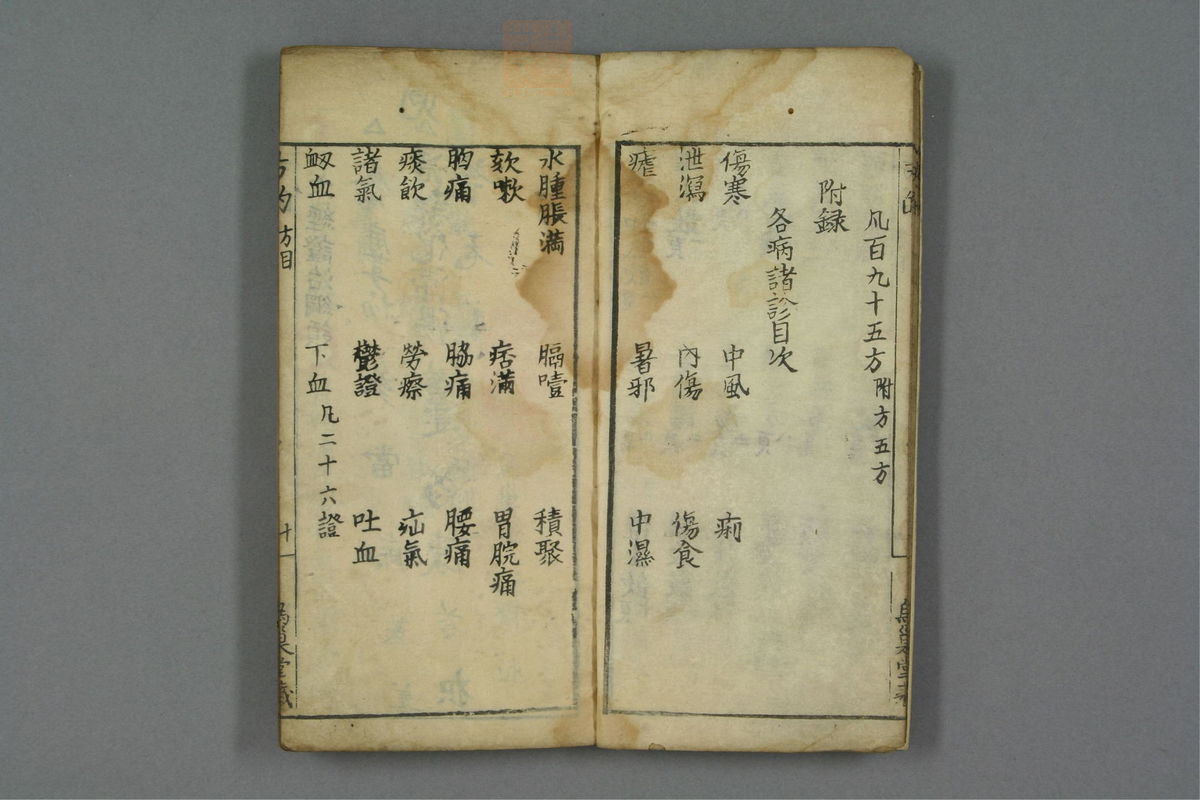 凡百九十五方 附方五方
附録
各病諸診目次
傷寒 中風 痢
泄瀉 內傷 傷食
瘧 暑邪 中濕
水腫脹滿 膈噎 積聚
欬嗽 痞滿 胃脘痛
胸痛 脇痛 腰痛
痰飲 勞瘵 疝氣
諸氣 鬱證 吐血
衂血 下血 凡二十六證
方目
十